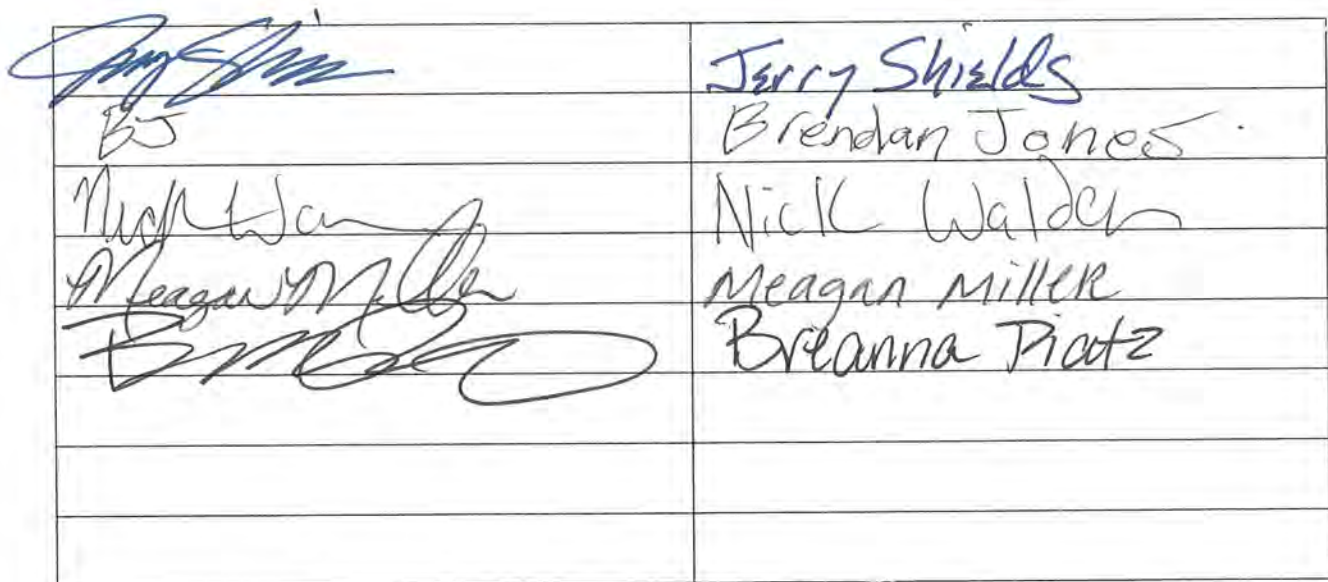 Jerry Shields
BJ Brendan Jones
Nick Walden
Meagan Miller Meagan Miller
Breanna Piatz